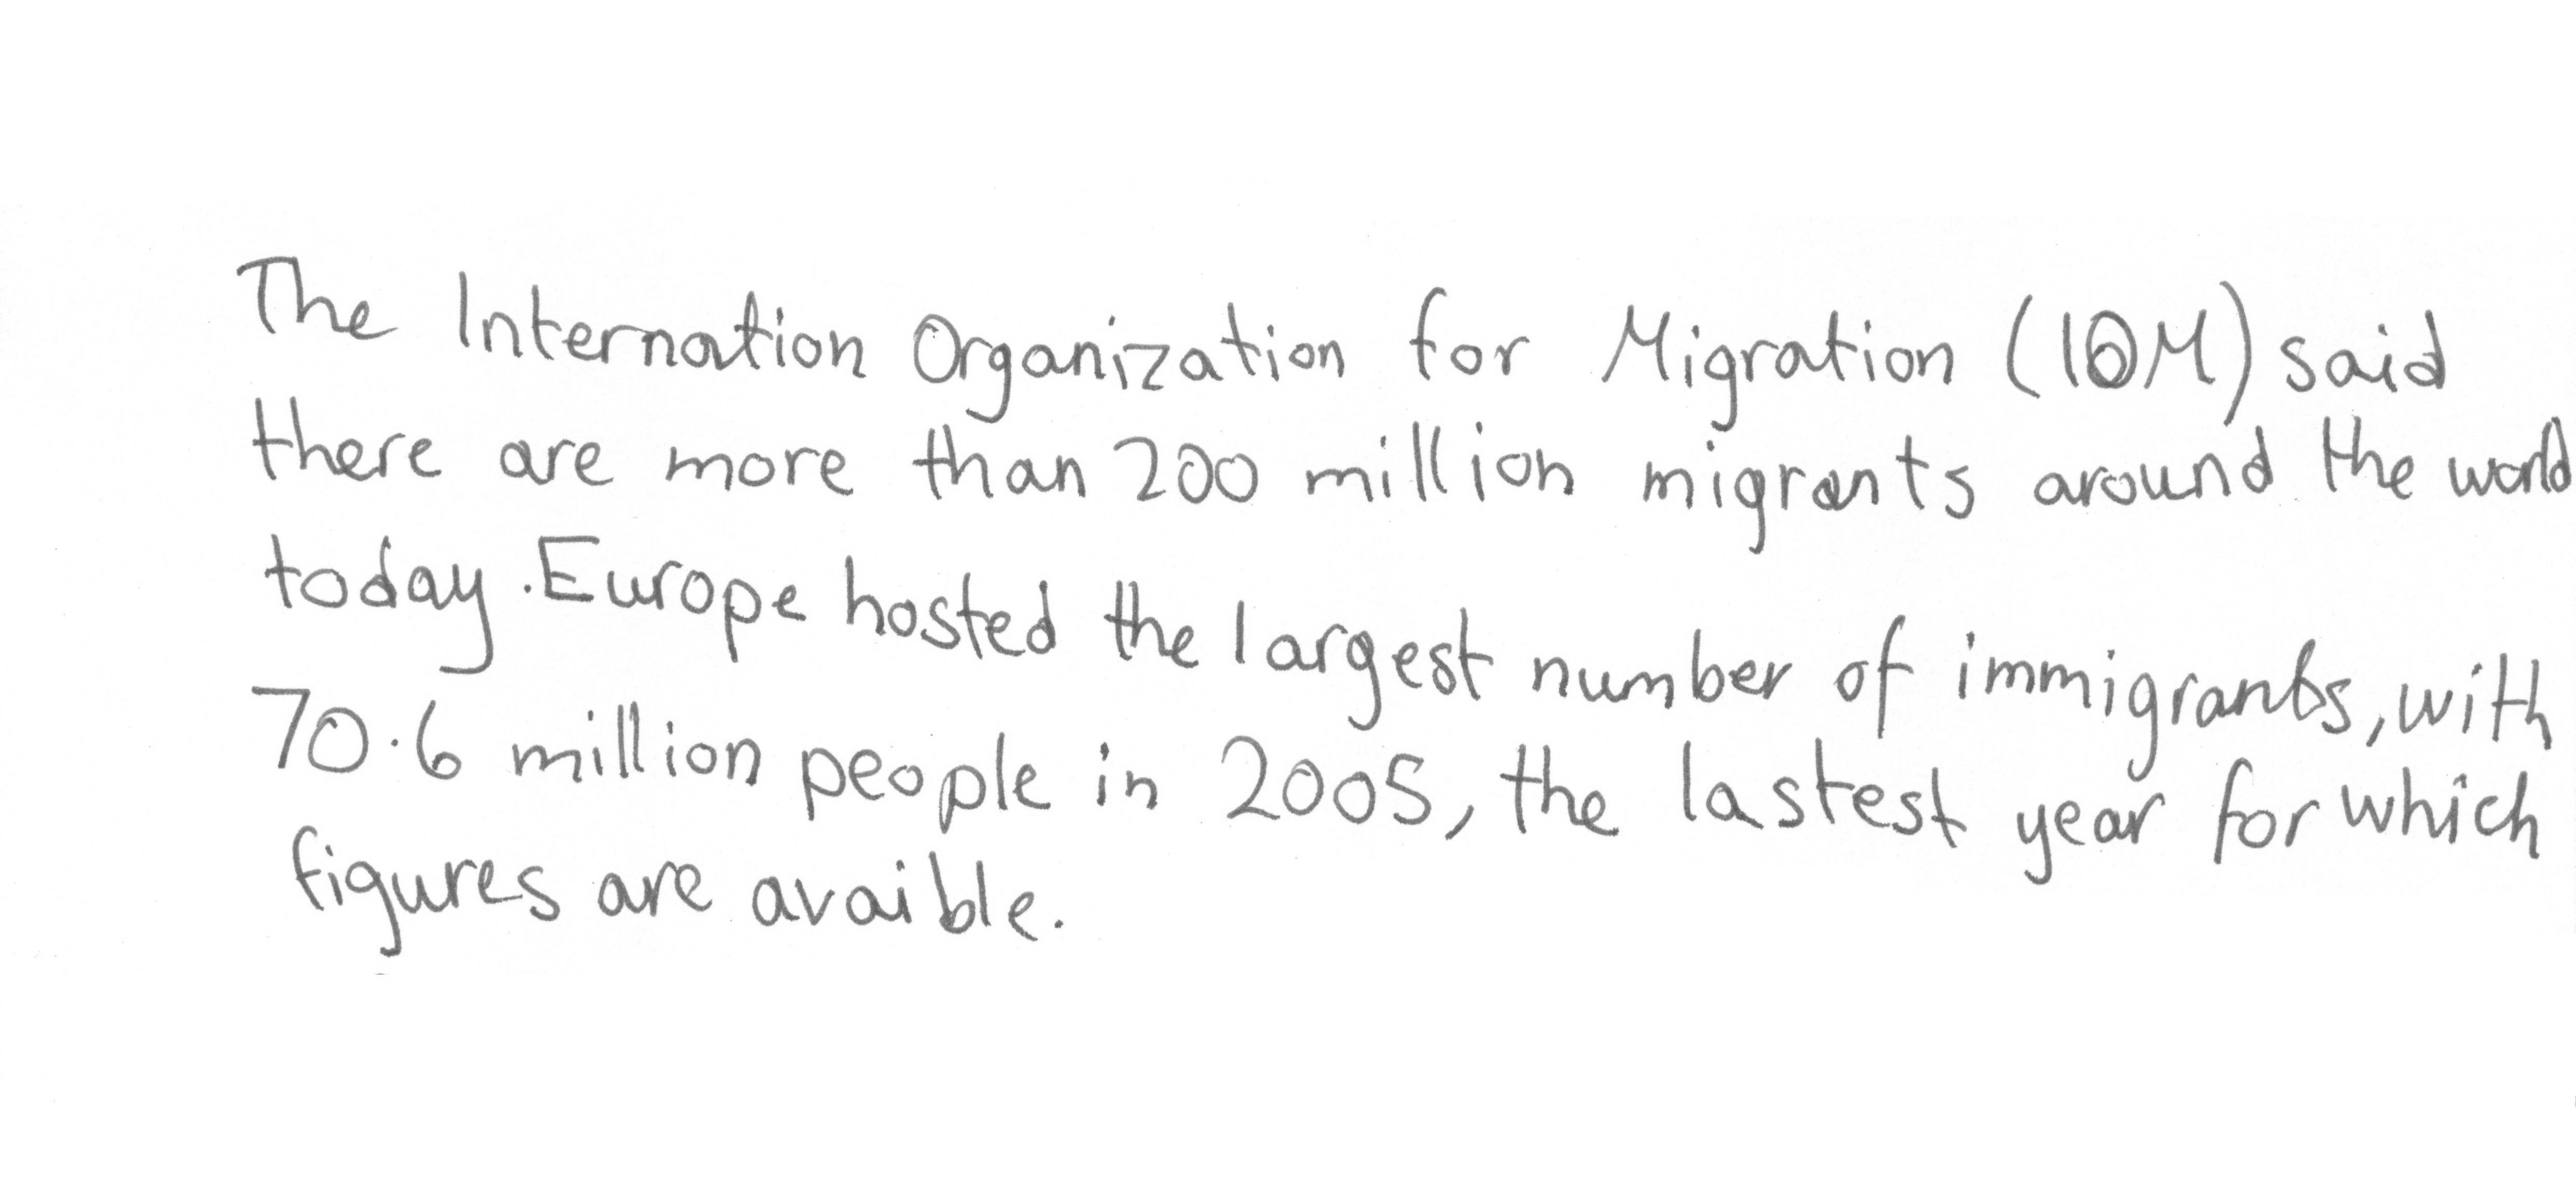 The Internation Organization for Migration (IOM) said
there are more than 200 million migrants around the world
today. Europe hosted the largest number of immigrants, with
70.6 million people in 2005, the lastest year for which
figures are avaible.